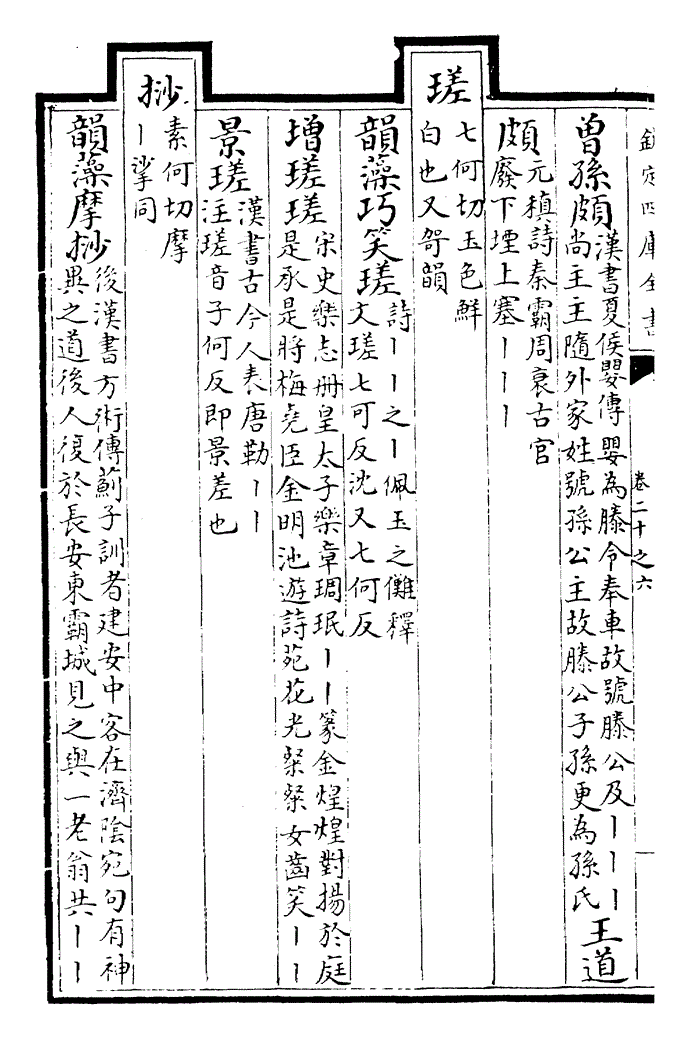 欽定四庫全書 卷二十之六
曾孫頗
漢書夏侯嬰傳嬰為滕令奉車故號滕公及丨丨丨
尚主主隨外家姓號孫公主故滕公子孫更為孫氏
王道
頗
元稹詩秦霸周衰古官
廢下堙上塞丨丨丨
瑳
七何切玉色鮮
白也又哿韻
韻藻巧笑瑳
詩丨丨之丨佩玉之儺釋
文瑳七可反沈又七何反
増瑳瑳
宋史樂志册皇太子樂章琱珉丨丨篆金煌煌對揚於庭
是承是將梅堯臣金明池遊詩苑花光粲粲女齒笑丨丨
景瑳
漢書古今人表唐勒丨丨
注瑳音子何反即景差也
挱
素何切摩
丨挲同
韻藻摩挱
後漢書方術傳薊子訓者建安中客在濟陰宛句有神
異之道後人復於長安東霸城見之與一老翁共丨丨